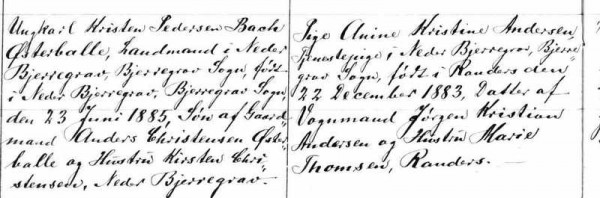 Ungkarl Kristen Pedersen Bach
Østerballe, Landmand i Neder
Bjerregrav, Bjerregrav Sogn, født
i Neder Bjerregrav, Bjerregrav Sogn,
den 23 Juni 1885, Søn af Gaard-
mand Anders Christensen Øster-
balle og Hustru Kirsten Chri-
stensen, Neder Bjerregrav.
Pige Anine Kristine Andersen
Tjenestepige i Neder Bjerregrav, Bjerre-
grav Sogn, født i Randers den
22 December 1883, Datter af
Vognmand Jörgen Kristian
Andersen og Hustru Marie
Thomsen, Randers.